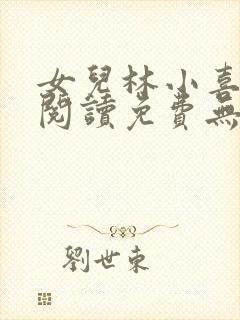 女兒林小喜
閱讀免費無
劉世東